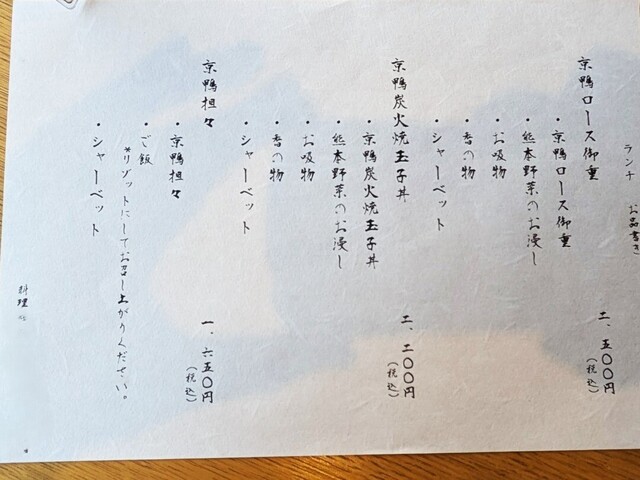 ランチ　お品書き
京鴨ロース御重
・京鴨ロース御重
・熊本野菜のお浸し
・お吸物
・香の物
・シャーベット
二、五〇〇円
（税込）
京鴨炭火焼玉子丼
・京鴨炭火焼玉子丼
・熊本野菜のお浸し
・お吸物
・香の物
・シャーベット
二、二〇〇円
（税込）
京鴨担々
・京鴨担々
・ご飯
*リゾットにしてお召し上がりください。
・シャーベット
一、六五〇円
（税込）
料理